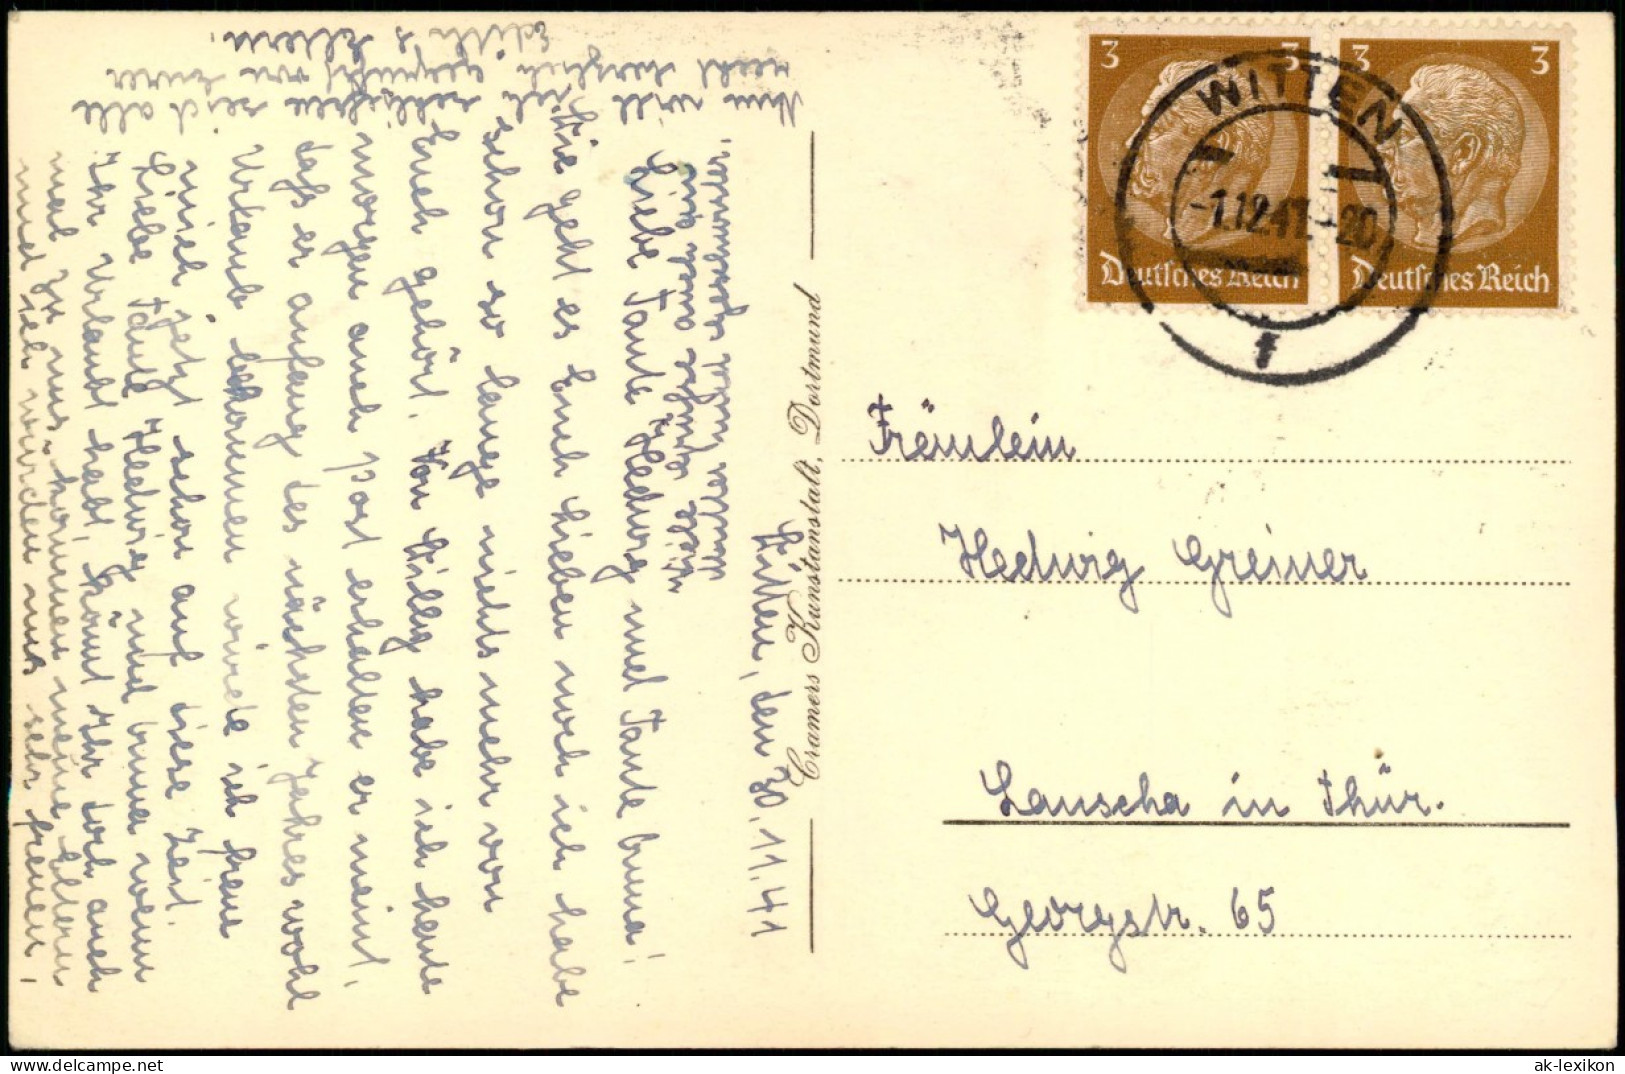 Witten, den 30.11.41
Liebe Tante Hedwig und Tante Emma!
Wie geht es Euch lieben noch ich habe
schon so lange nichts mehr von
Euch gehört. Von Willy habe ich heute
morgen auch Post erhalten er meint,
dass er anfang des nächsten Jahres wohl
Urlaub bekommen würde ich freue
mich jetzt schon auf diese Zeit.
Liebe Tante Hedwig und Emma wenn
Ihr Urlaub habt, kömt Ihr doch auch
mal zu uns kommen meine Eltern
und ich würden uns sehr freuen,
Nun will ich schließen seid alle
recht herzlich gegrüßt von Eurer
Edith u. Eltern.
Viele Grüße auch an
Mutter und Geschwister.
Cramers Kunstanstalt, Dortmund
3 3
Deutsches Reich
3 3
Deutsches Reich
WITTEN
1
-1.12.41.-20
f
Fräulein
Hedwig Greiner
Lauscha in Thür.
Georgstr. 65
ak-lexikon